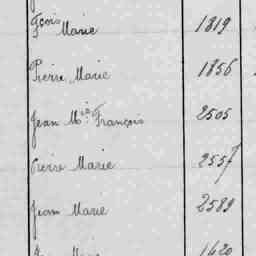 Fçois Marie 1819
Pierre Marie 1856
Jean M.ie François 2505
Pierre Marie 2557
Jean Marie 2589
1620